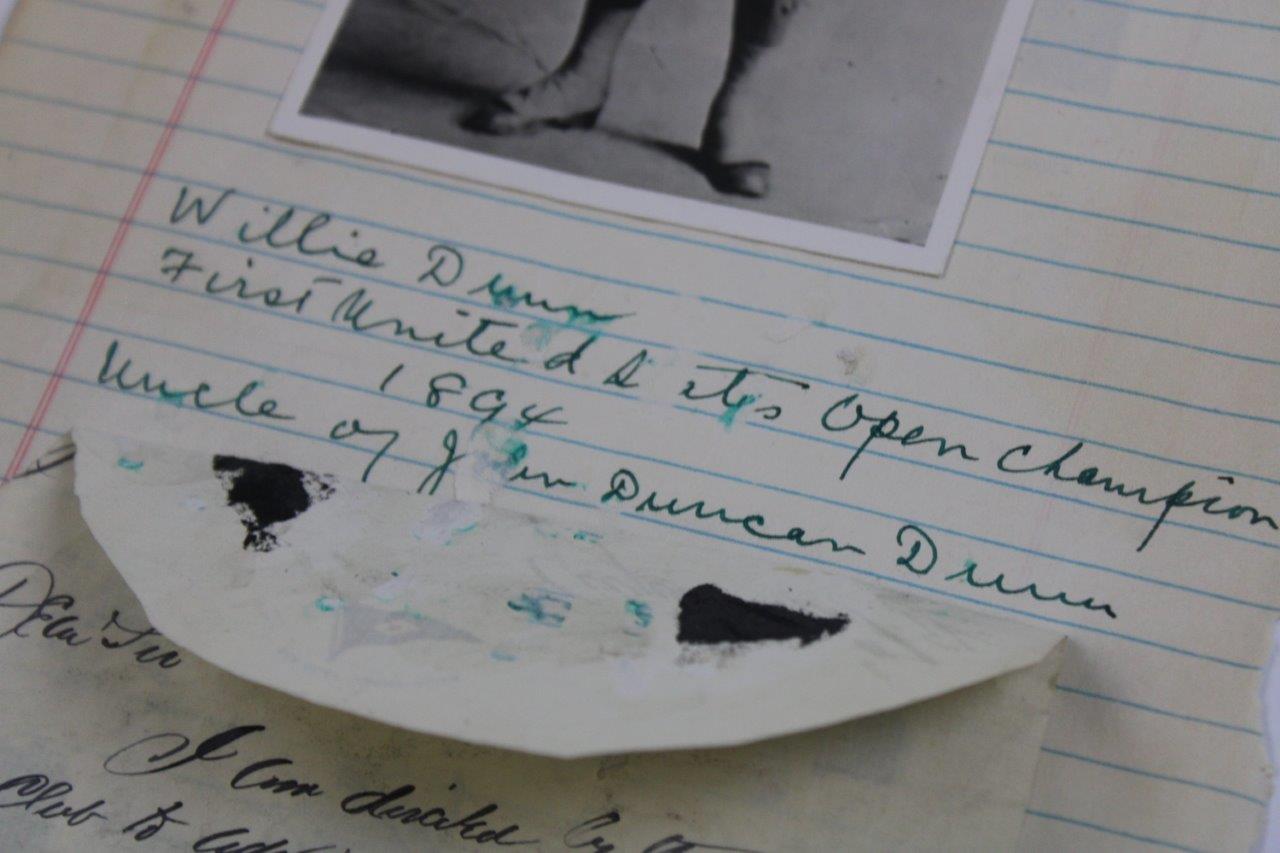 Willie Dunn
First United States Open Champion
1894
Uncle of John Duncan Dunn
Dear Sir
I am directed by
Club to